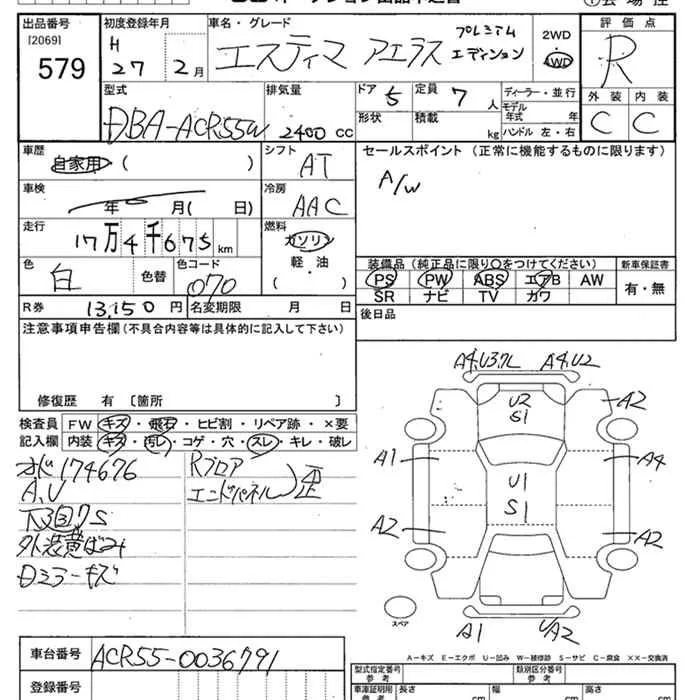 出品番号 [2069] 579
初度登録年月 H 27 2月
車名・グレード エスティマ アエラス プレミアム エディション
2WD 4WD
評価点 R
外装 内装
C C
型式 DBA-ACR55W
排気量 2400 CC
ドア 5 定員 7 人
形状 積載 kg
ディーラー・並行
モデル年式 年
ハンドル 左・右
車歴 自家用 ( )
シフト AT
セールスポイント (正常に機能するものに限ります)
A/W
車検 年 月( 日)
冷房 AAC
走行 17万4千675km
燃料 ガソリン 軽・油 ( )
色 白 色替 色コード 070
装備品 (純正品に限り○をつけてください) 新車保証書
PS PW ABS エアB AW 有・無
SR ナビ TV カワ
R券 13,150円 名変期限 月 日
後日品
注意事項申告欄 (不具合内容等は具体的に記入して下さい)
修復歴 有 〔箇所 〕
検査員 FW キズ・飛石・ヒビ割・リペア跡・×要
記入欄 内装 キズ・汚レ・コゲ・穴・スレ・キレ・破レ
174676
A,U
下回りS
Dミラーキズ
Rフロア
エンドパネル 歪
A4,U3,7L A4,U2
U2
S1
A2
A1 A4
U1
S1
A2 A2
スペア
A1 U/A2
A-キズ E-エクボ U-凹み W-補修跡 S-サビ C-腐食 ××-交換済
車台番号 ACR55-0036791
登録番号
型式指定番号 類別区分番号
車庫証明用参考 長さ 幅 高さ